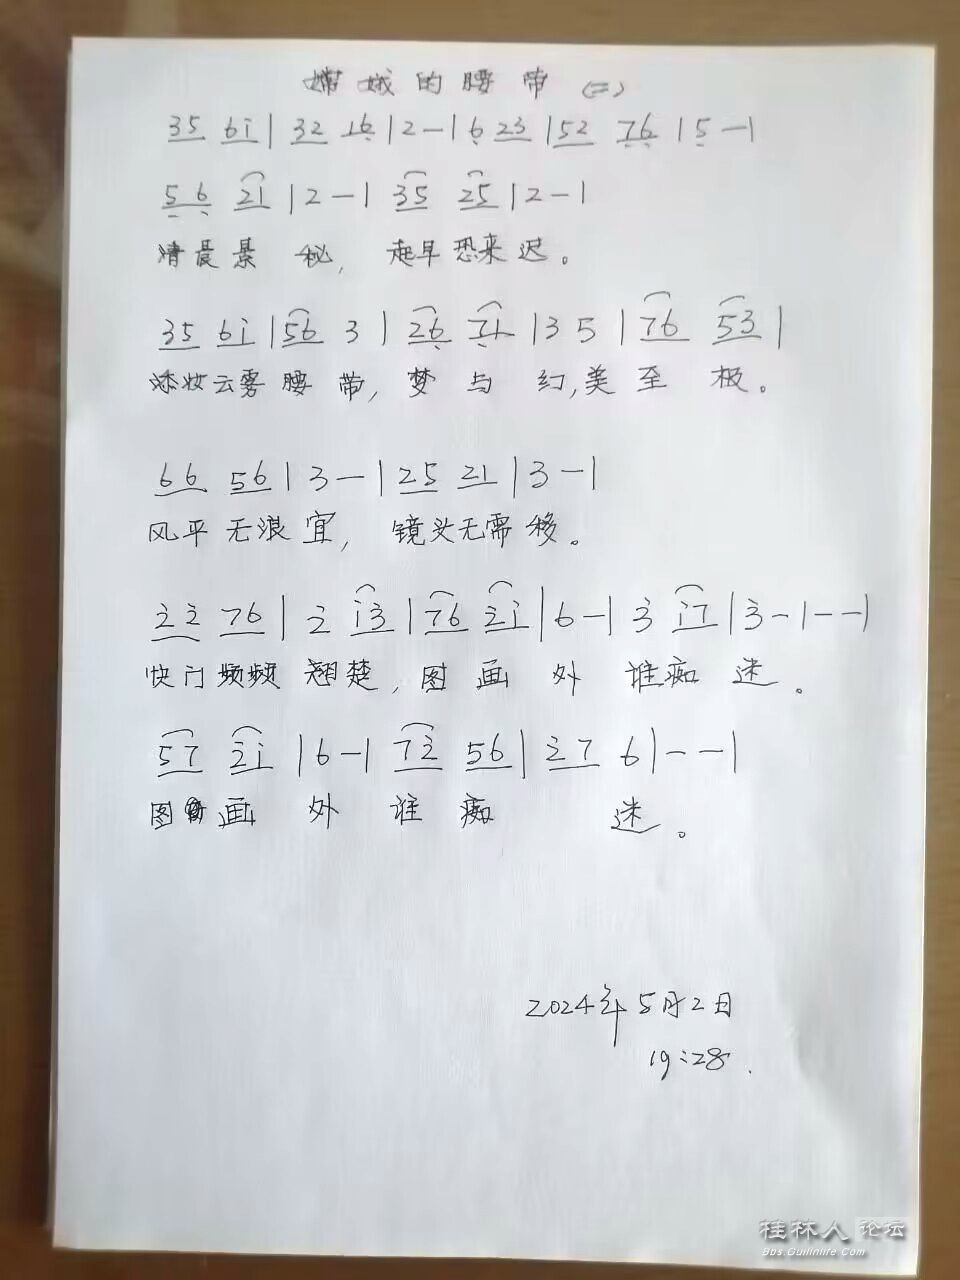 嫦娥的腰带 (二)
35 6i | 32 16 | 2 - | 6 23 | 52 76 | 5 - |
56 21 | 2 - | 35 25 | 2 - |
清晨景秘, 起早恐来迟。
35 6i | 56 3 | 26 71 | 3 5 | 76 53 |
添妆云雾腰带, 梦与幻, 美至极。
66 56 | 3 - | 25 21 | 3 - |
风平无浪宜, 镜头无需移。
22 76 | 2 i3 | 76 2i | 6 - | 3 i7 | 3 - | - - |
快门频频翘楚, 图画外谁痴迷。
57 2i | 6 - | 72 56 | 27 6 | - - |
图画外谁痴迷。
2024年5月2日
19:28.
桂林人论坛
Bbs.Guilinlife.Com